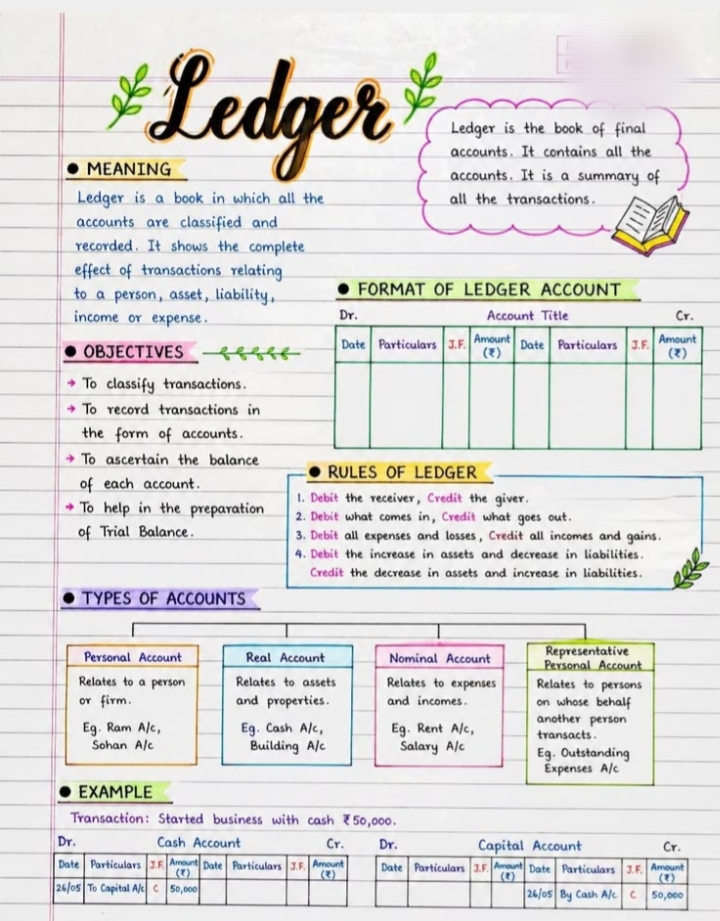 Ledger
Ledger is the book of final
accounts. It contains all the
accounts. It is a summary of
all the transactions.
● MEANING
Ledger is a book in which all the
accounts are classified and
recorded. It shows the complete
effect of transactions relating
to a person, asset, liability,
income or expense.
● FORMAT OF LEDGER ACCOUNT
Dr. Account Title Cr.
Date Particulars J.F. Amount (₹) Date Particulars J.F. Amount (₹)
● OBJECTIVES
→ To classify transactions.
→ To record transactions in
the form of accounts.
→ To ascertain the balance
of each account.
→ To help in the preparation
of Trial Balance.
● RULES OF LEDGER
1. Debit the receiver, Credit the giver.
2. Debit what comes in, Credit what goes out.
3. Debit all expenses and losses, Credit all incomes and gains.
4. Debit the increase in assets and decrease in liabilities.
Credit the decrease in assets and increase in liabilities.
● TYPES OF ACCOUNTS
Personal Account
Relates to a person
or firm.
Eg. Ram A/c,
Sohan A/c
Real Account
Relates to assets
and properties.
Eg. Cash A/c,
Building A/c
Nominal Account
Relates to expenses
and incomes.
Eg. Rent A/c,
Salary A/c
Representative
Personal Account
Relates to persons
on whose behalf
another person
transacts.
Eg. Outstanding
Expenses A/c
● EXAMPLE
Transaction: Started business with cash ₹50,000.
Dr. Cash Account Cr.
Date Particulars J.F. Amount (₹) Date Particulars J.F. Amount (₹)
26/05 To Capital A/c C 50,000
Dr. Capital Account Cr.
Date Particulars J.F. Amount (₹) Date Particulars J.F. Amount (₹)
26/05 By Cash A/c C 50,000